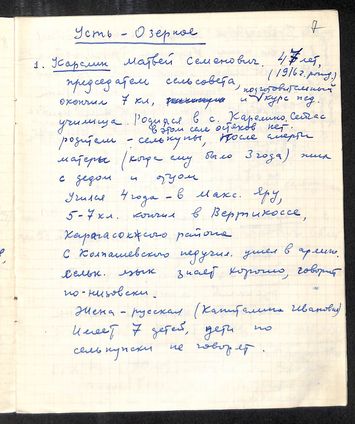 7
Усть - Озерное
1. Карелин Матвей Семенович. 47 лет,
(1916 г. рожд.)
председатель сельсовета,
окончил 7 кл, и подготовительный курс пед.
училища. Родился в с. Карелино. Сейчас
в этом селе остяков нет.
родители - селькупы, после смерти
матери (когда ему было 3 года) жил
с дедом и отцом
Учился 4 года - в Макс. Яру,
5-7 кл. кончил в Вертикоссе,
Каргасокского района
С Колпашевского педучил. ушел в армию.
Сельк. язык знает хорошо, говорит
по-низовски.
Жена - русская (Капиталина Ивановна)
Имеет 7 детей, дети по
селькупски не говорят.